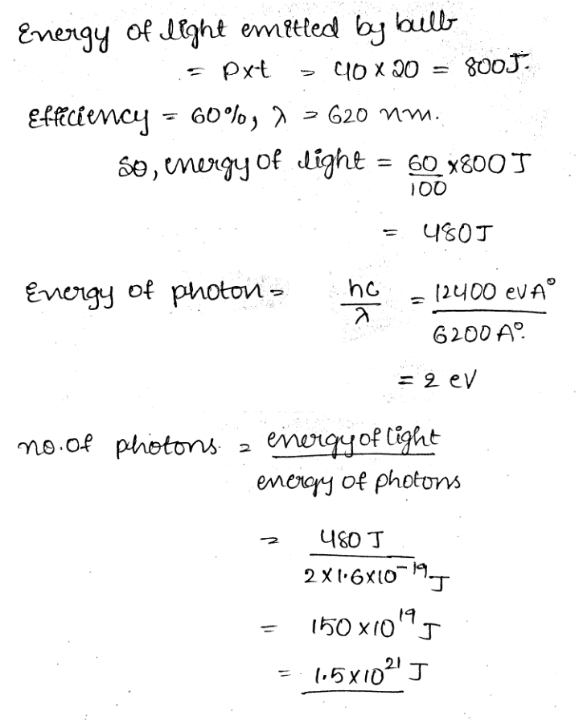 Energy of light emitted by bulb
= P×t = 40 × 20 = 800J.
Efficiency = 60%, λ = 620 nm.
So, energy of light = 60/100 × 800 J
= 480J
Energy of photon = hc/λ = 12400 eVA°/6200 A°.
= 2 eV
no. of photons = energy of light/energy of photons
= 480 J/2×1.6×10⁻¹⁹J
= 150 ×10¹⁹ J
= 1.5×10²¹ J